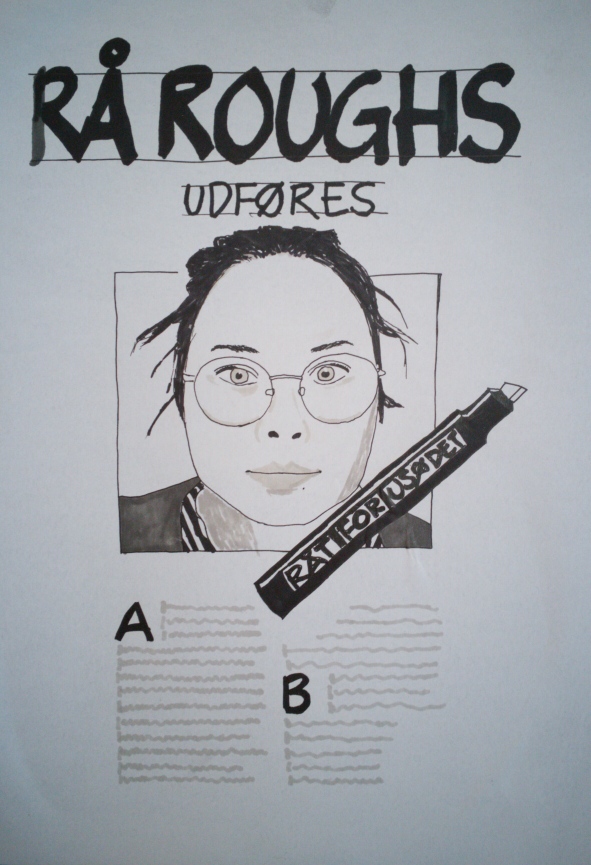 RÅ ROUGHS
UDFØRES
RÅT FORUSØDET
A
B